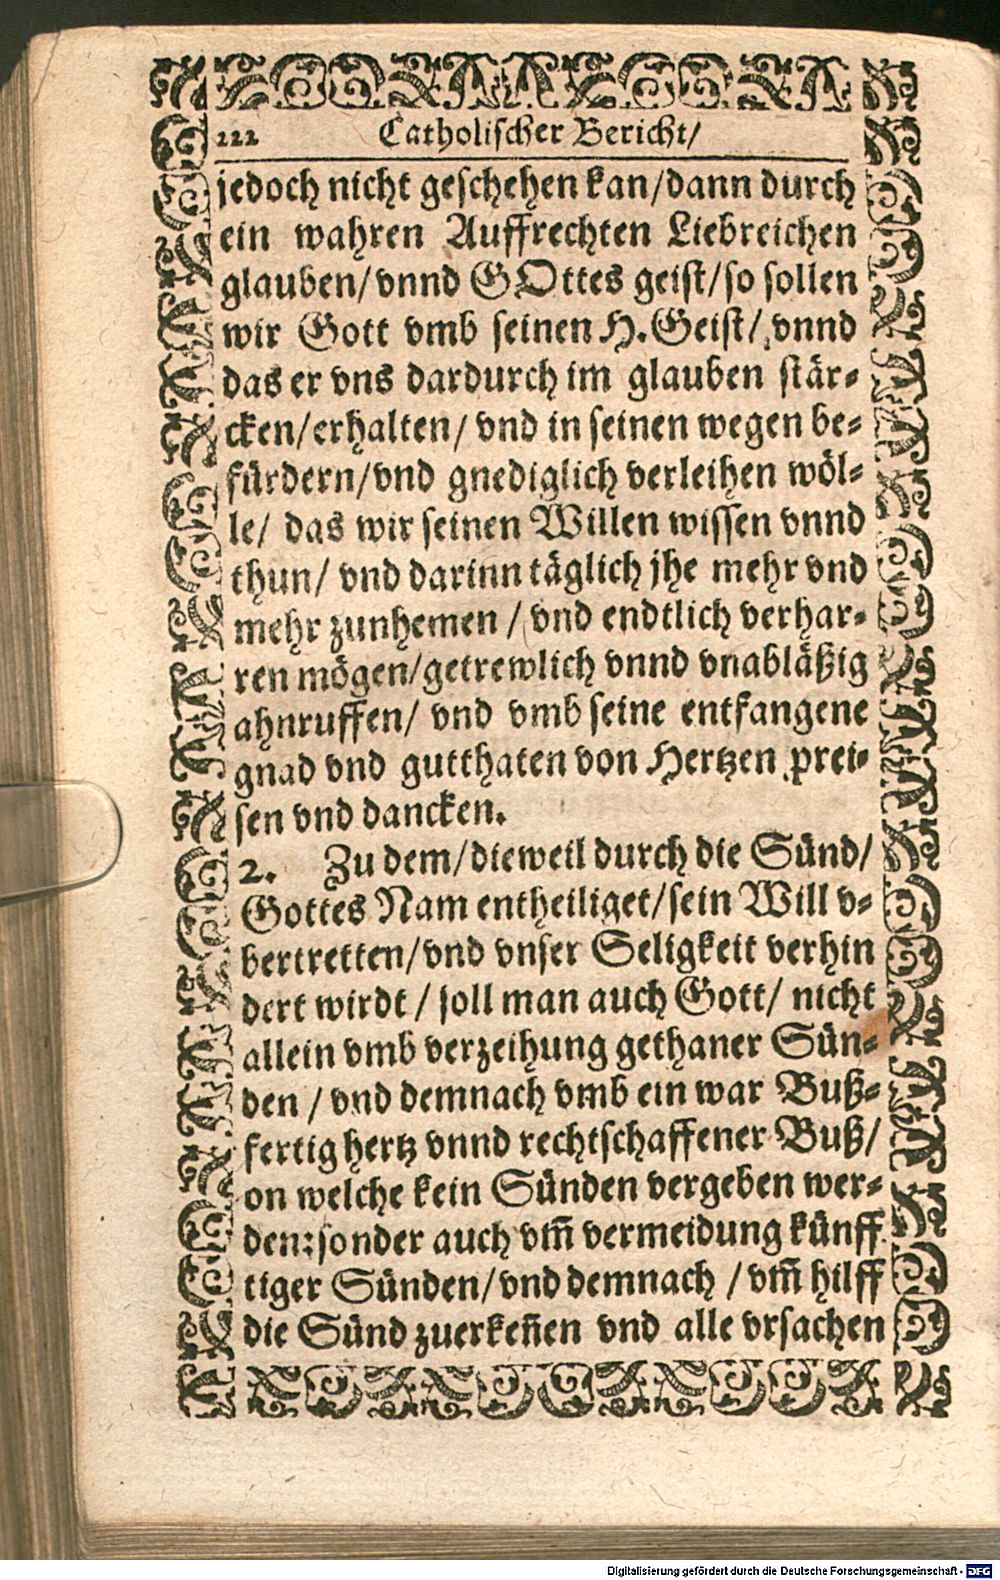 222 Catholischer Bericht/
jedoch nicht geschehen kan/dann durch
ein wahren Auffrechten Liebreichen
glauben/vnnd GOttes geist/so sollen
wir Gott vmb seinen H. Geist/ vnnd
das er vns dardurch im glauben stär-
cken/erhalten/ vnd in seinen wegen be-
fürdern/vnd gnediglich verleihen wöl-
le/ das wir seinen Willen wissen vnnd
thun/ vnd darinn täglich jhe mehr vnd
mehr zunhemen / vnd endtlich verhar-
ren mögen/getrewlich vnnd vnabläßig
ahnruffen/ vnd vmb seine entfangene
gnad vnd gutthaten von Hertzen prei-
sen vnd dancken.
2. Zu dem/dieweil durch die Sünd/
Gottes Nam entheiliget/sein Will v-
bertretten/vnd vnser Seligkeit verhin
dert wirdt / soll man auch Gott/ nicht
allein vmb verzeihung gethaner Sün-
den / vnd demnach vmb ein war Buß-
fertig hertz vnnd rechtschaffener Buß/
on welche kein Sünden vergeben wer-
den:sonder auch vm̄ vermeidung künff
tiger Sünden/vnd demnach / vm̄ hilff
die Sünd zuerkeñen vnd alle vrsachen
Digitalisierung gefördert durch die Deutsche Forschungsgemeinschaft - DFG